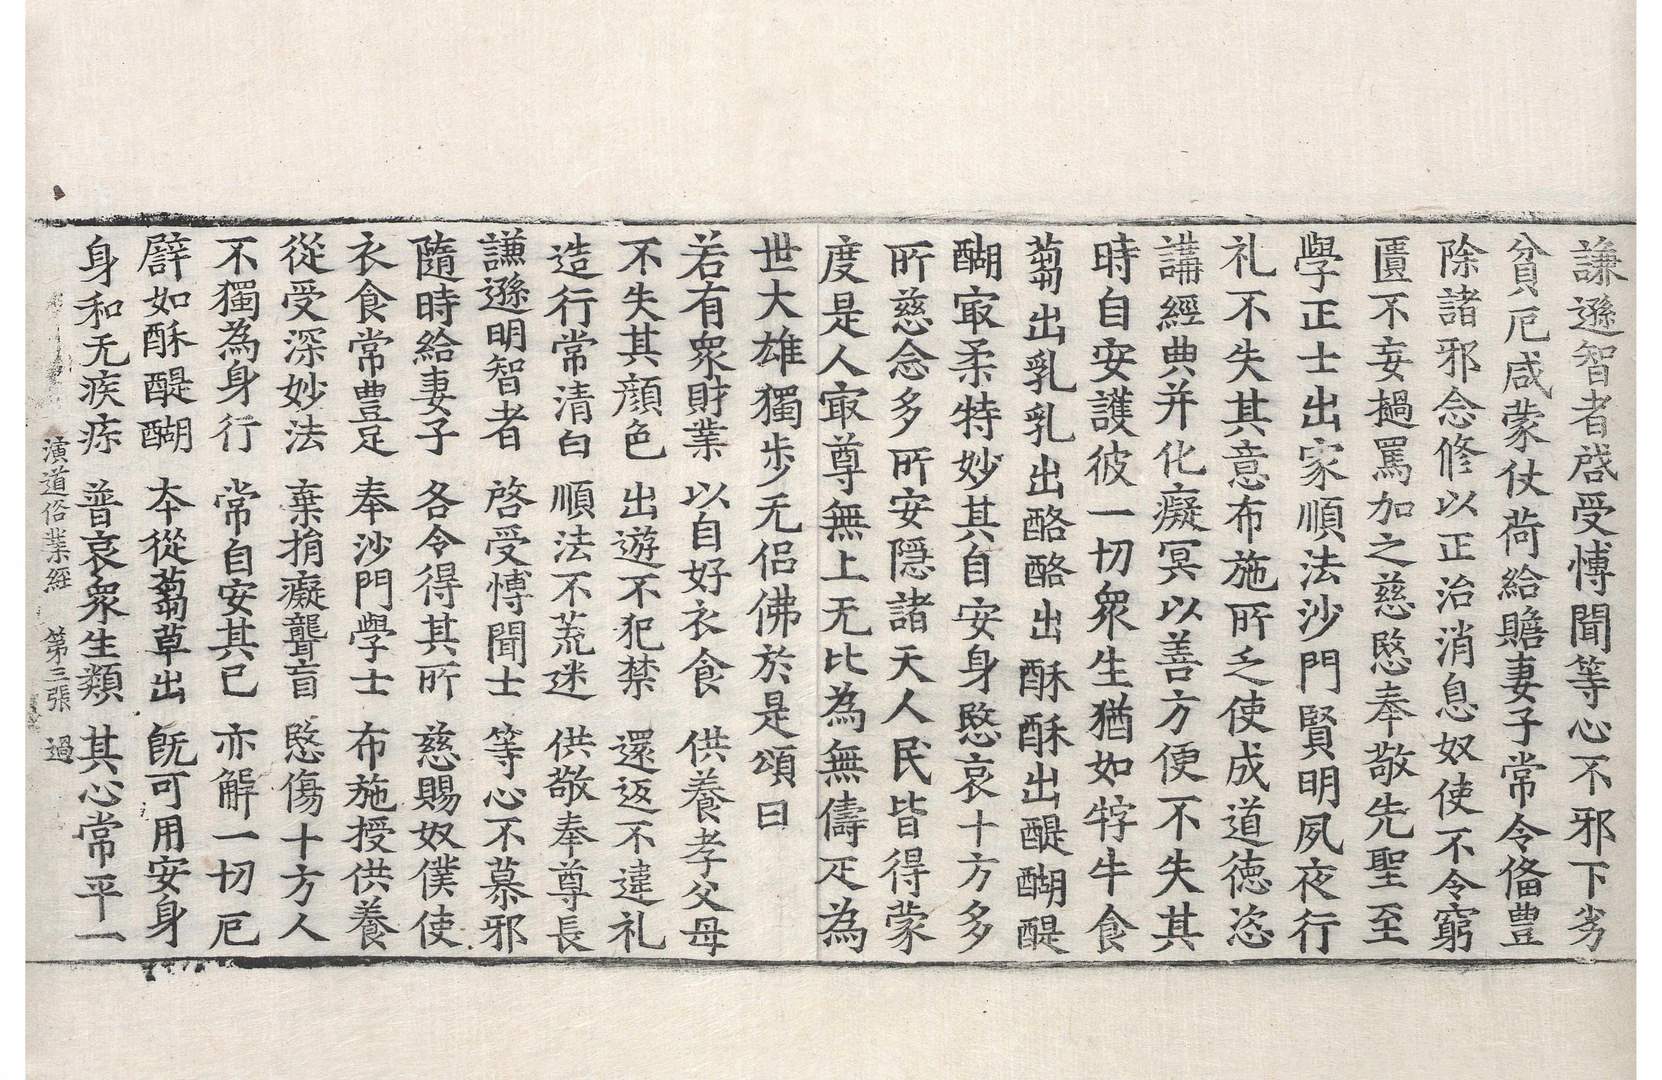 謙遜智者啓受愽聞等心不邪下劣
貧厄咸蒙仗荷給贍妻子常令俻豊
除諸邪念修以正治消息奴使不令窮
匱不妄撾罵加之慈愍奉敬先聖至
學正士出家順法沙門賢明夙夜行
礼不失其意布施所乏使成道徳恣
講經典并化癡冥以善方便不失其
時自安護彼一切衆生猶如牸牛食
蒭出乳乳出酪酪出酥酥出醍醐醍
醐冣柔特妙其自安身愍哀十方多
所慈念多所安隠諸天人民皆得蒙
度是人冣尊無上无比為無儔疋為
世大雄獨步无侣佛於是頌曰
若有衆財業　以自好衣食　供養孝父母
不失其顔色　出遊不犯禁　還返不違礼
造行常清白　順法不荒迷　供敬奉尊長
謙遜明智者　啓受愽聞士　等心不慕邪
隨時給妻子　各令得其所　慈賜奴僕使
衣食常豊足　奉沙門學士　布施授供養
從受深妙法　棄捐癡聾盲　愍傷十方人
不獨為身行　常自安其已　亦解一切厄
譬如酥醍醐　夲從蒭草出　旣可用安身
身和无疾疢　普哀衆生類　其心常平一
演道俗業經　第三張　過